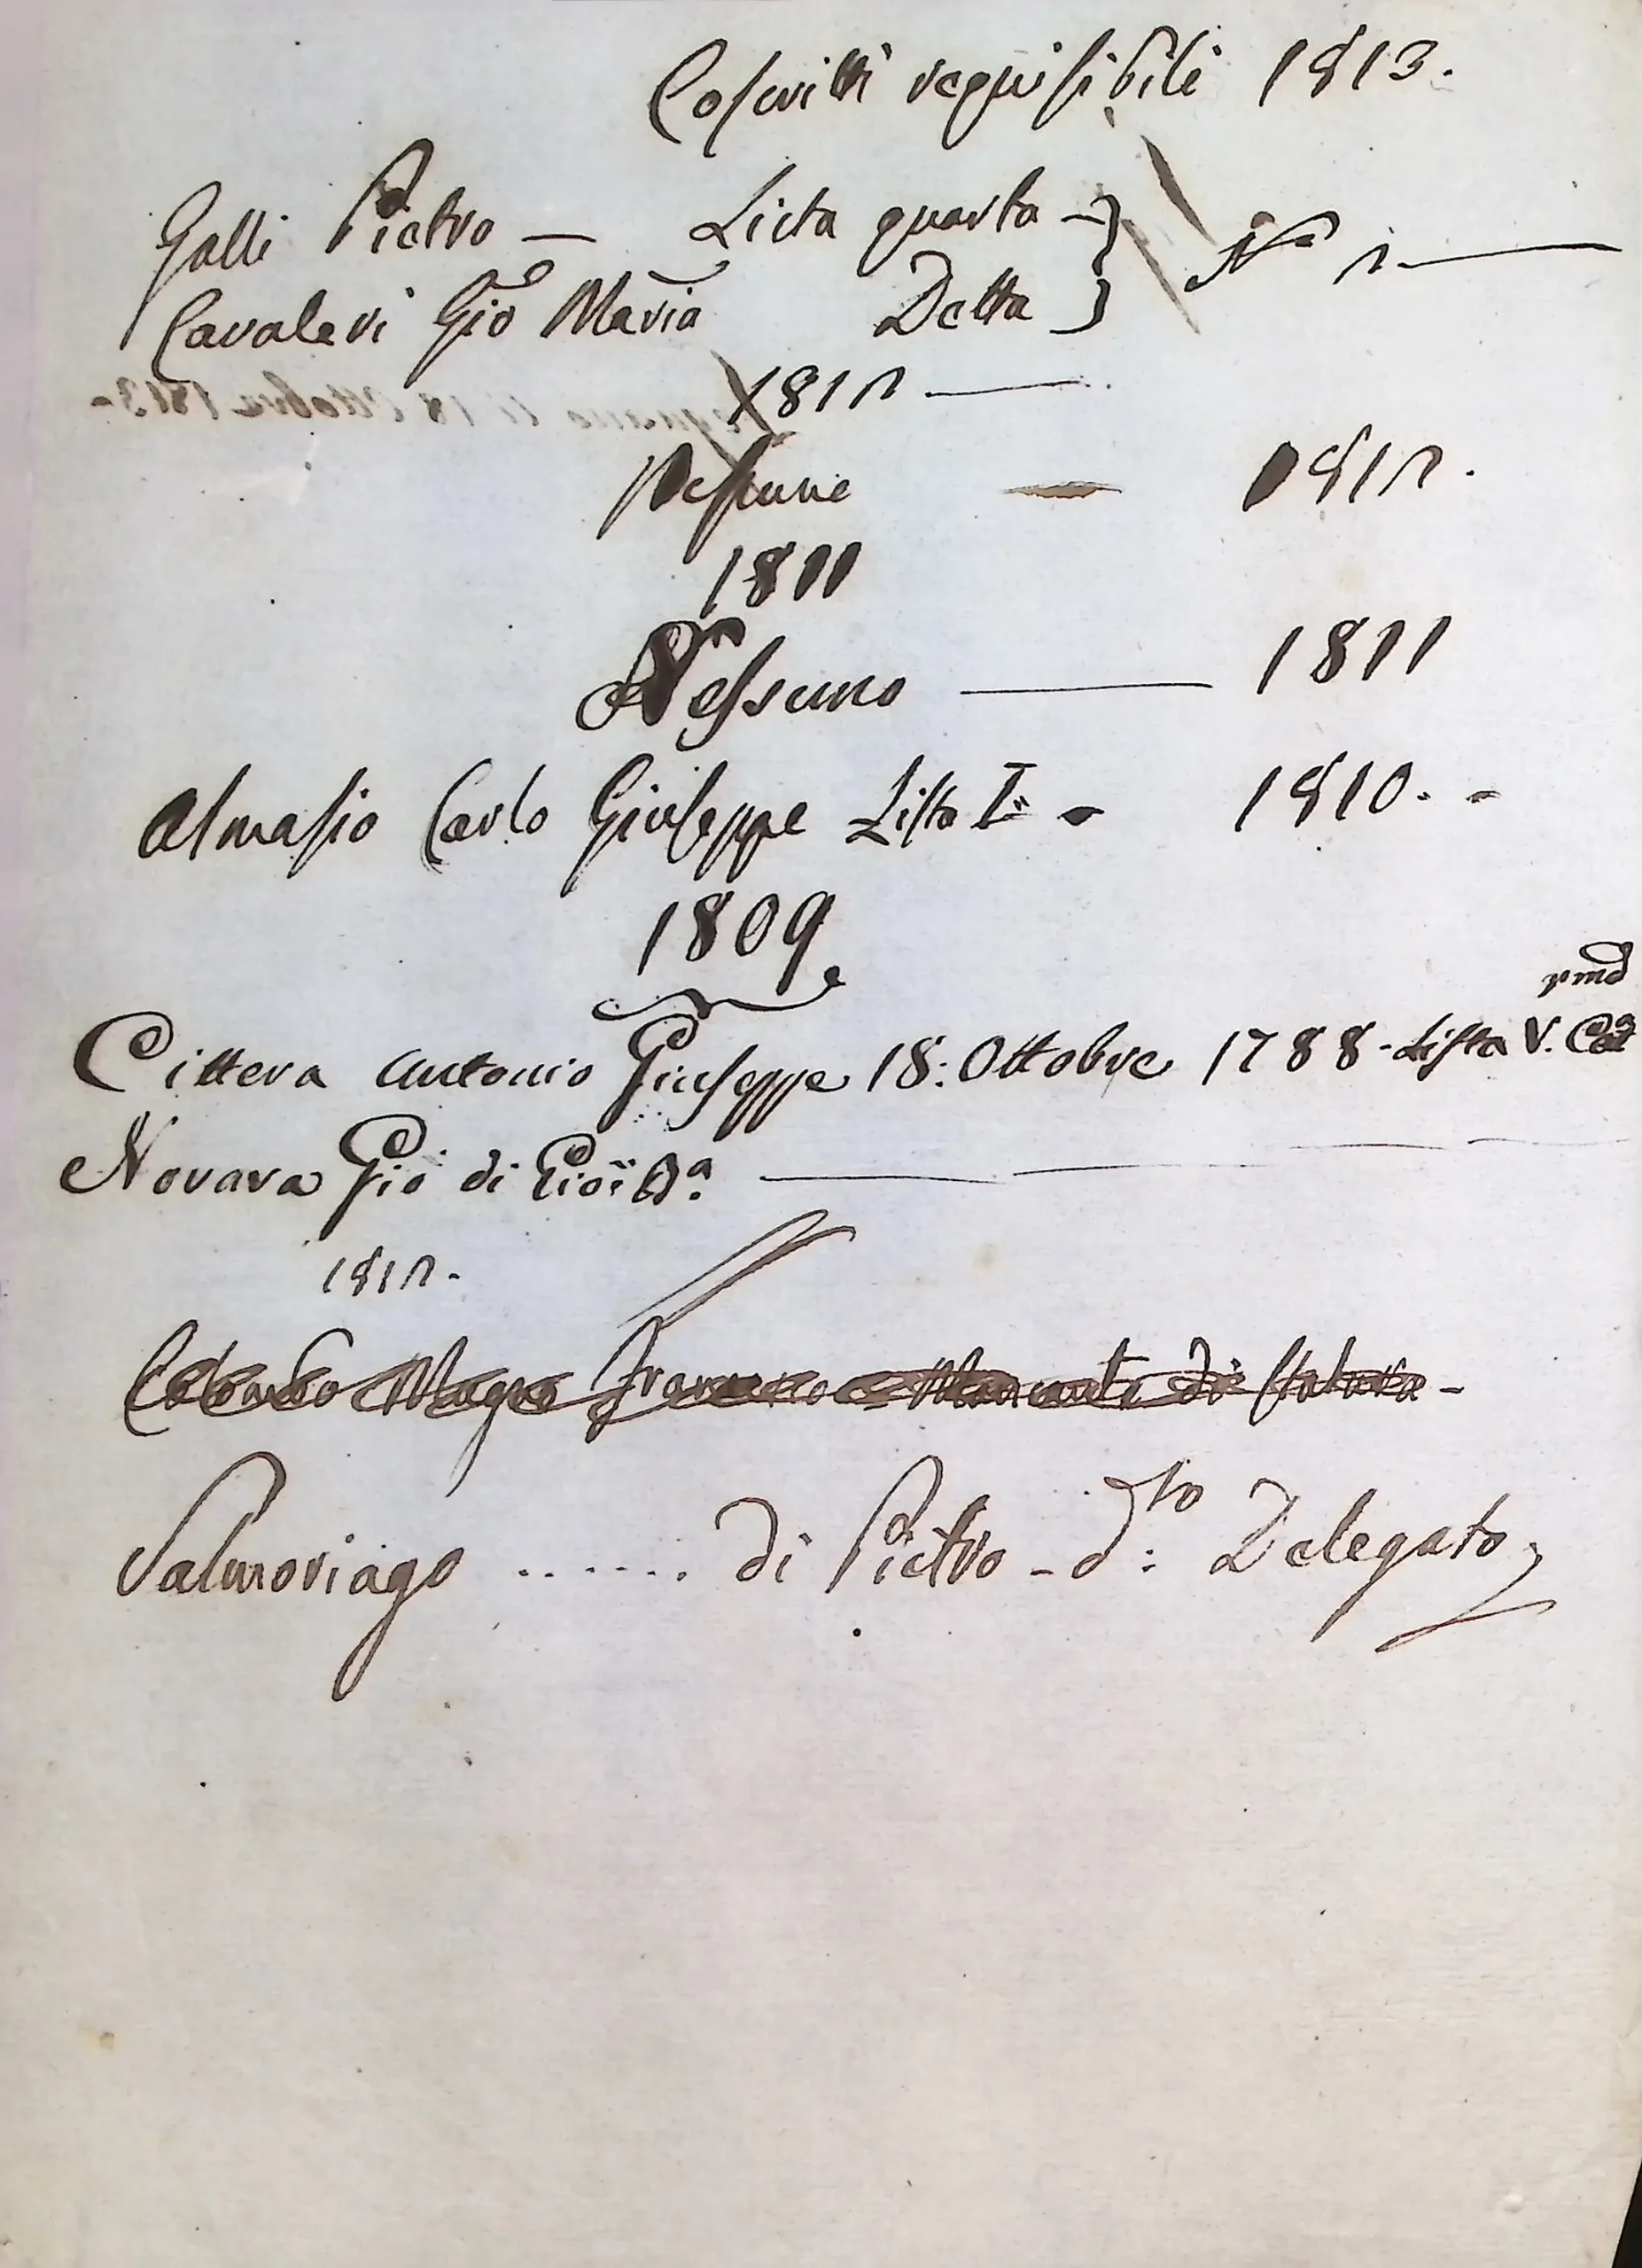 Coscritti requisibili 1813.
Galli Pietro — Lista quarta — } N.° 2.
Cavaleri Gio Maria Detta }
1812 —
Nessuno — 1812.
1811
Nessuno — 1811
Almasio Carlo Giuseppe Lista I.a - 1810. -
1809
Cittera Antonio Giuseppe 18: Ottobre 1788 - Lista V.
Novara Gio di Gio: Ba. —
1812.
Colombo Magro Francesco Mancante di statura -
Salmoriago ....... di Pietro - d:to Delegato